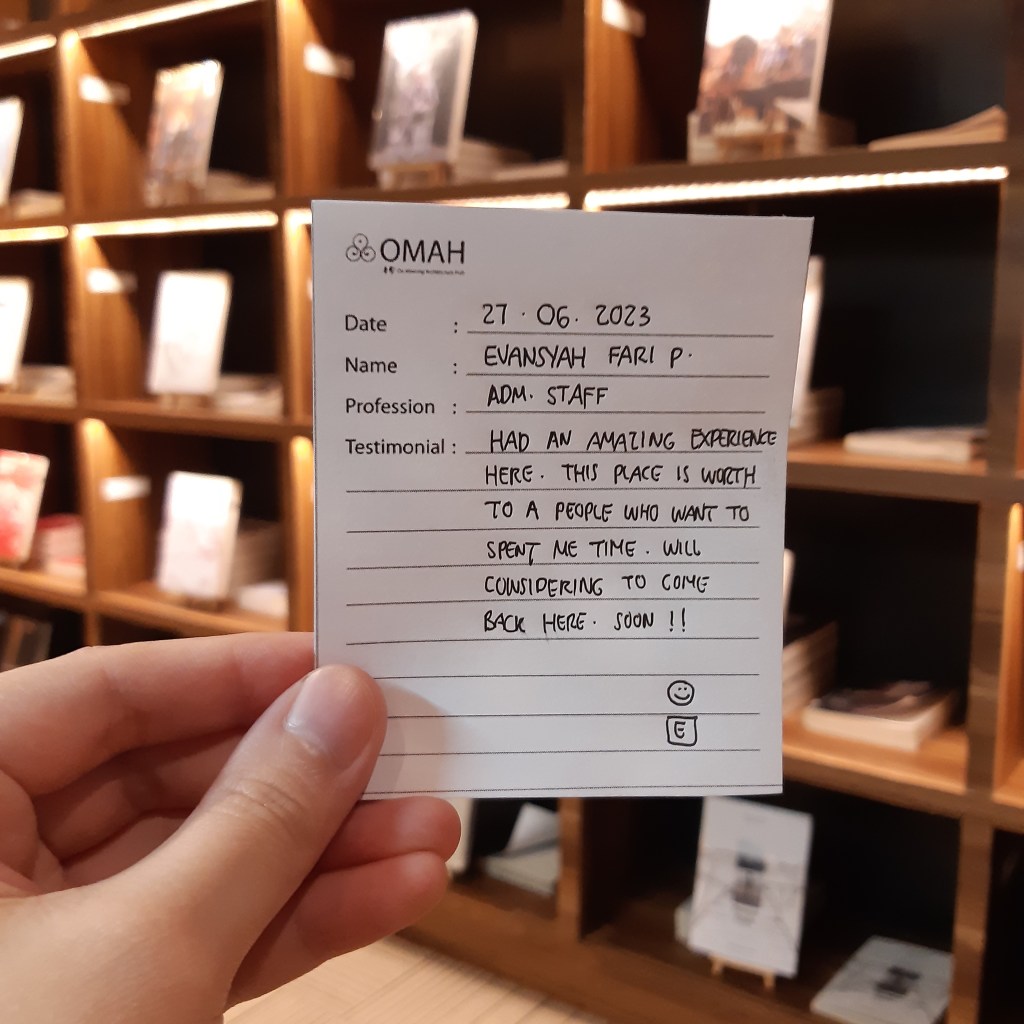 OMAH
Date : 27 · 06. 2023
Name : EVANSYAH FARI P.
Profession : ADM. STAFF
Testimonial : HAD AN AMAZING EXPERIENCE
HERE. THIS PLACE IS WORTH
TO A PEOPLE WHO WANT TO
SPENT ME TIME. WILL
CONSIDERING TO COME
BACK HERE. SOON !!
E